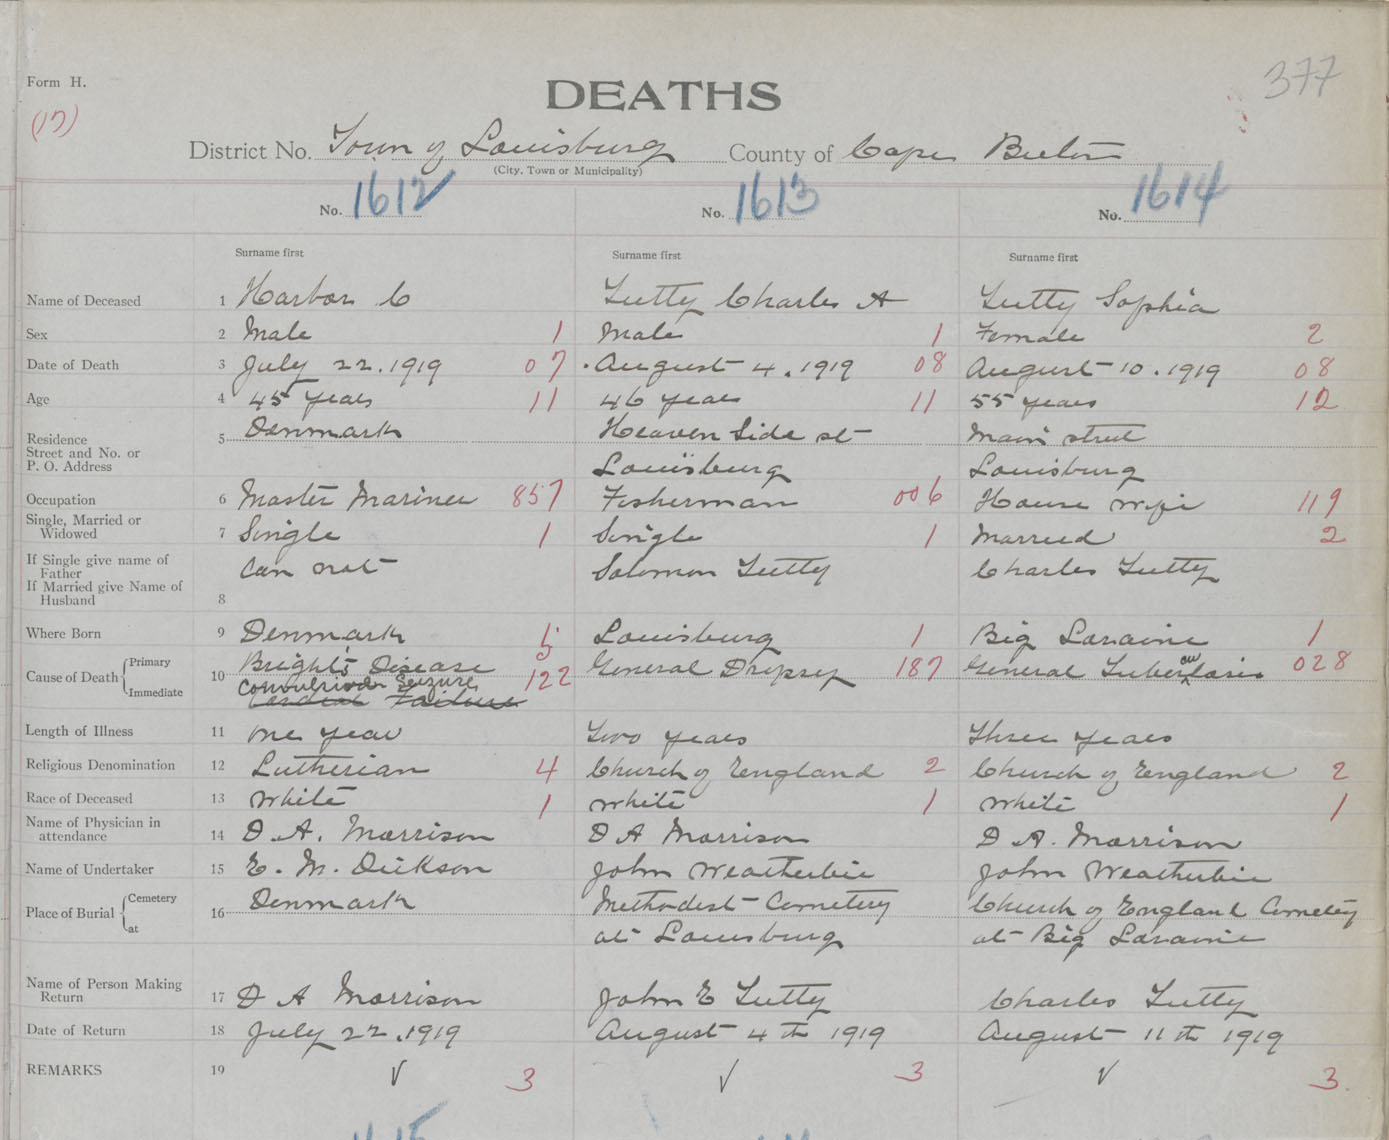 Form H.
DEATHS
377
(17)
District No. Town of Louisburg County of Cape Breton
(City, Town or Municipality)
No. 1612 No. 1613 No. 1614
Surname first Surname first Surname first
Name of Deceased 1 Harbor C Tutty Charles A Tutty Sophia
Sex 2 Male 1 Male 1 Female 2
Date of Death 3 July 22. 1919 07 August 4. 1919 08 August 10. 1919 08
Age 4 45 years 11 46 years 11 55 years 12
Residence Street and No. or P. O. Address 5 Denmark Heaven Side st Main street
Louisburg Louisburg
Occupation 6 Master Mariner 857 Fisherman 006 House wife 119
Single, Married or Widowed 7 Single 1 Single 1 Married 2
If Single give name of Father If Married give Name of Husband 8 Can not Solomon Tutty Charles Tutty
Where Born 9 Denmark 5 Louisburg 1 Big Loraine 1
Cause of Death Primary Immediate 10 Bright's Disease 122 General Dropsy 187 General Tuberculosis 028
Convulsion Seizure
Cardiac Failure
Length of Illness 11 one year Two years Three years
Religious Denomination 12 Lutherian 4 Church of England 2 Church of England 2
Race of Deceased 13 White 1 White 1 White 1
Name of Physician in attendance 14 D. A. Morrison D A Morrison D A. Morrison
Name of Undertaker 15 E. M. Dickson John Weatherbie John Weatherbie
Place of Burial Cemetery at 16 Denmark Methodist Cemetery Church of England Cemetey
at Louisburg at Big Loraine
Name of Person Making Return 17 D A Morrison John E Tutty Charles Tutty
Date of Return 18 July 22. 1919 August 4th 1919 August 11th 1919
REMARKS 19 3 3 3